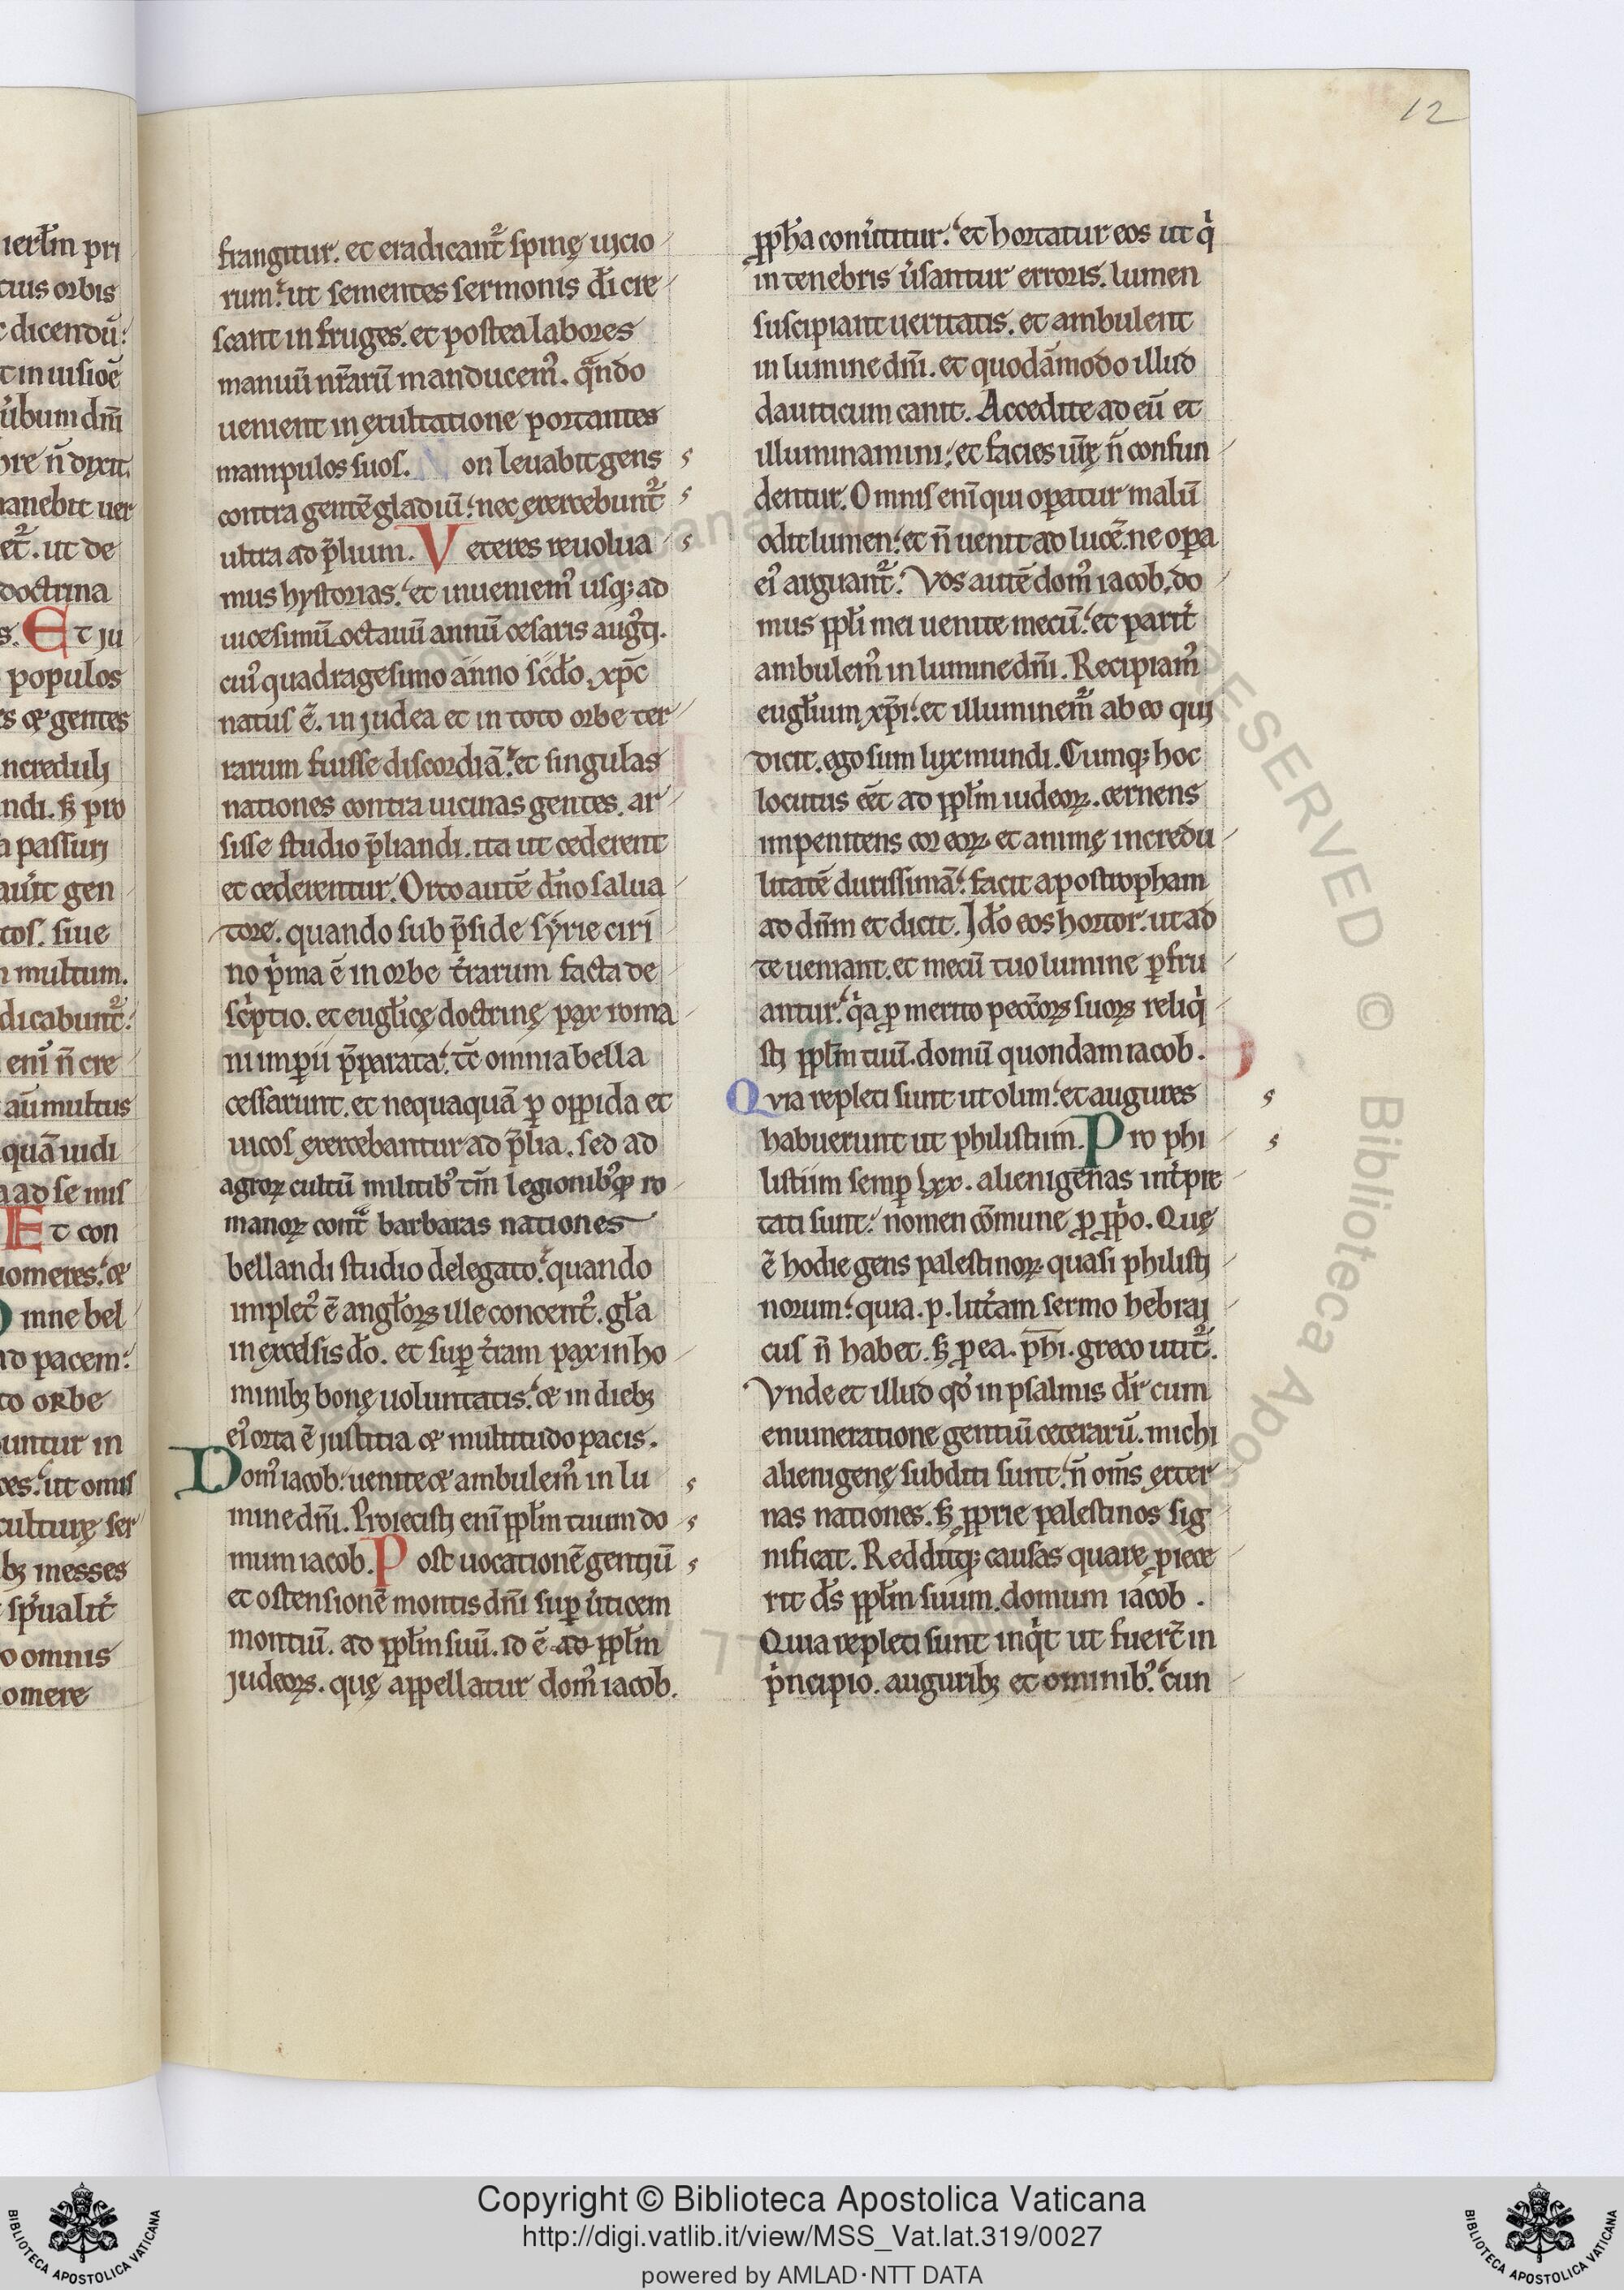 12
ierłm pri
tius orbis
dicendū:
t in uisioē
u̓bum dn̄i
n̄ dixit.
manebit uer
ut de
doctrina
Et ju
populos
gentes
increduli
ndi. pro
passuri
gen
siue
multum.
dicabunt᷑:
eni̅ n̄ cre
aū multus
quā uidi
a ad se mis
Et con
uomeres. & 
Omne bel
ad pacem:
to orbe
untur in
ut om̄s
culturę ser
messes
sp̄ualit̓
omnis
uomere
frangitur. et eradicant᷑ spinę uicio
rum: ut sementes sermonis dī cre
scant in fruges. et postea labores
manuū nr̄arū manducem᷒. qn̄do
uenient in exultatione portantes
manipulos suos. Non leuabit gens
contra gentē gladiū: nec exercebunt᷑
ultra ad p̄lium. Veteres reuolua
mus hystorias: et inueniem᷒ usq; ad
uicesimū octauū annū cesaris aug᷒ti.
cui᷒ quadragesimo anno sc̄do xp̄c
natus ē. in judea et in toto orbe ter
rarum fuisse discordiā: et singulas
nationes contra uicinas gentes. ar
sisse studio p̄liandi. ita ut cederent
et cederentur. Orto autē dn̄o salua
tore. quando sub p̄side syrie ciri
no p̓ma ē in orbe t̓rarum facta de
sc̓ptio. et eugl̄icę doctrinę pax roma
ni imp̲ii p̄parata: tc̄ omnia bella
cessarunt. et nequaquā p̲ oppida et
uicos exercebantur ad p̄lia. sed ad
agroꝝ cultū militib᷒ tm̄ legionib᷒q; ro
manoꝝ cont̃ barbaras nationes
bellandi studio delegato: quando
implet᷒ ē angl̄oꝝ ille concent᷒. gl̄a
in excelsis dō. et sup̲ t̓ram pax in ho
minib; bonę uoluntatis: & in dieb;
ei᷒ orta ē justitia & multitudo pacis.
Dom᷒ iacob: uenite & ambulem᷒ in lu
mine dn̄i. Proiecisti eni̅ ppl̄m tuum do
mum iacob. Post uocationē gentiū
et ostensionē montis dn̄i sup̲ u̓ticem
montiū. ad ppl̄m suū. id ē ad ppl̄m
judeoꝝ. quę appellatur dom᷒ iacob.
pph̄a conu̓titur: et hortatur eos ut q̓
in tenebris u̓santur erroris. lumen
suscipiant ueritatis. et ambulent
in lumine dn̄i. et quodāmodo illud
dauiticum canit. Accedite ad eū et
illuminamini: et facies ur̄ę n̄ confun
dentur. Omnis eni̅ qui op̲atur malū
odit lumen: et n̄ uenit ad lucē: ne op̲a
ei᷒ arguant᷑. Vos autē dom᷒ iacob. do
mus ppl̄i mei uenite mecū: et parit̓
ambulem᷒ in lumine dn̄i. Recipiam᷒
eugl̄ium xp̄i: et illuminem᷑ ab eo qui
dicit. ego sum lux mundi. Cumq; hoc
locutus eēt ad ppl̄m iudeoꝝ. cernens
impenitens cor eoꝝ et animę incredu
litatē durissimā: facit apostropham
ad dn̄m et dicit. Id̄o eos hortor. ut ad
te ueniant. et mecū tuo lumine p̲fru
antur: q̓a p merito pecc̄oꝝ suoꝝ reliq̓
sti ppl̄m tuū. domū quondam iacob.
Quia repleti sunt ut olim: et augures
habuerunt ut philistiim. Pro phi
listiim semp̲ lxx. alienigenas int̓pre
tati sunt: nomen cōmune ꝓ ꝓp̓o. Quę
ē hodie gens palestinoꝝ quasi philisti
norum: quia .p. litt̓am sermo hebrai
cus n̄ habet. sꝫ ꝓ ea. phi. greco utit᷑.
Vnde et illud qd̓ in psalmis dr̄ cum
enumeratione gentiū ceterarū. michi
alienigenę subditi sunt: n̄ om̄s exter
nas nationes. sꝫ ꝓprie palestinos sig
nificat. Redditq; causas quare ꝓiece
rit ds̄ ppl̄m suum. domum iacob.
Quia repleti sunt inq̓t ut fuer̄t in
p̓ncipio. augurib; et ominib᷒: cun
Copyright © Biblioteca Apostolica Vaticana
http://digi.vatlib.it/view/MSS_Vat.lat.319/0027
powered by AMLAD·NTT DATA
BIBLIOTECA APOSTOLICA VATICANA
BIBLIOTECA APOSTOLICA VATICANA